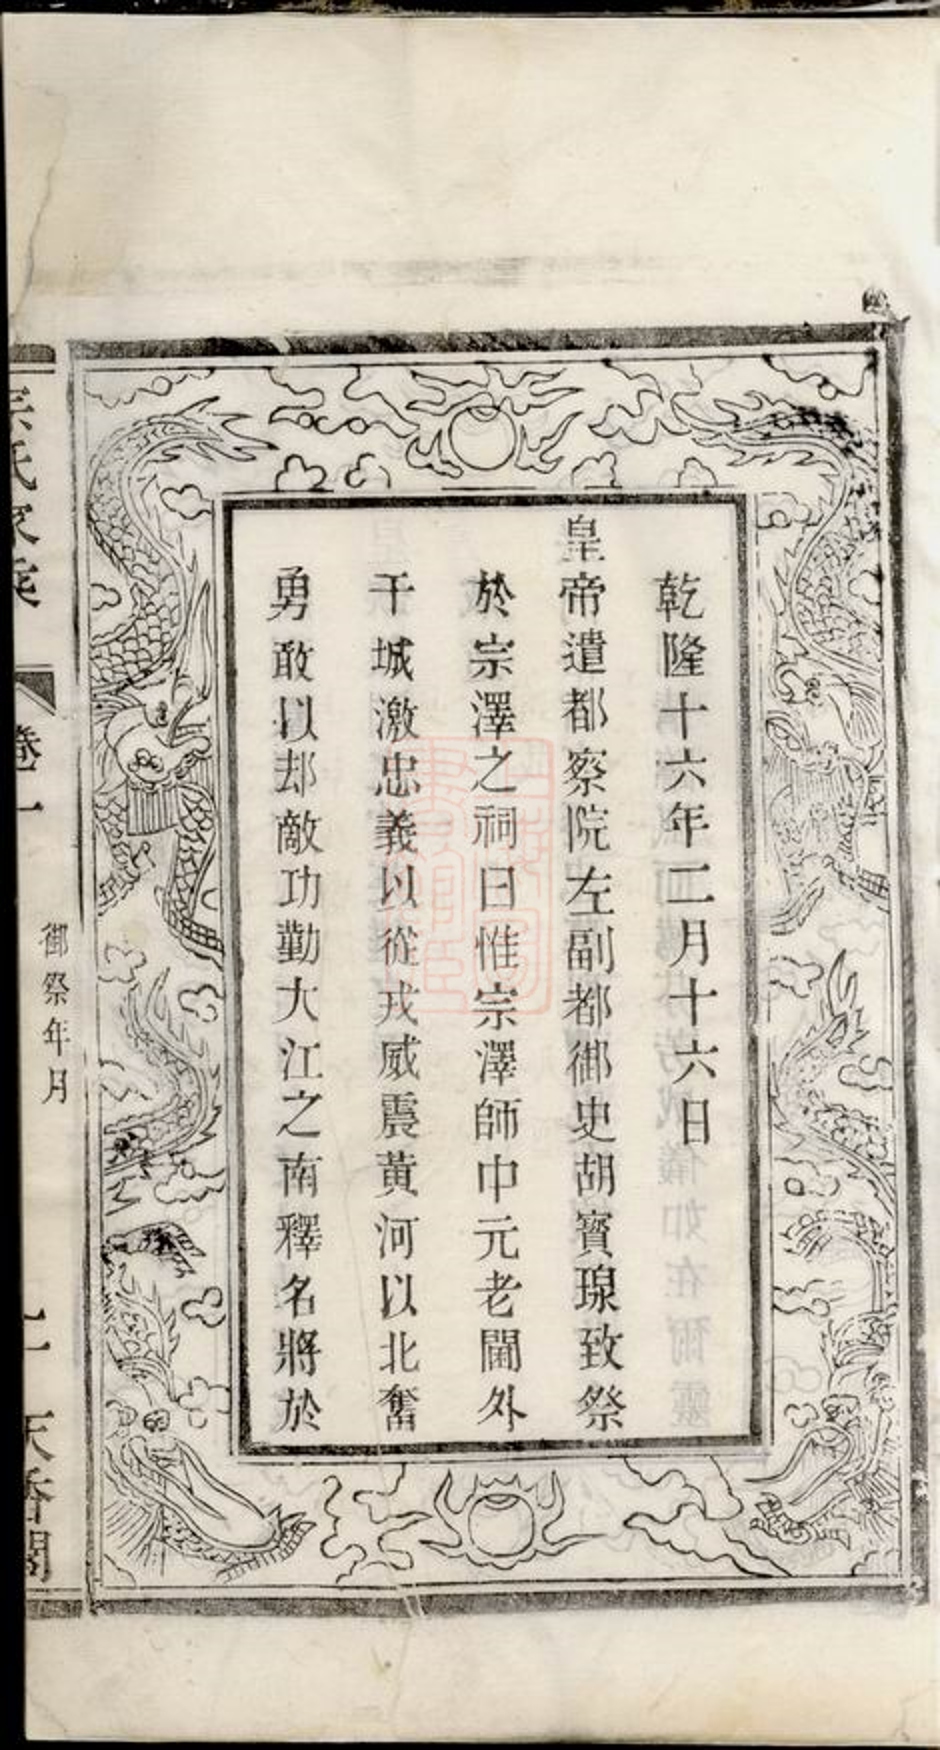 乾隆十六年二月十六日
皇帝遣都察院左副都御史胡寳瑔致祭
於宗澤之祠曰惟宗澤師中元老閫外
干城激忠義以從戎威震黃河以北奮
勇敢以却敵功勤大江之南釋名將於
卷一
御祭年月
一
天香閣